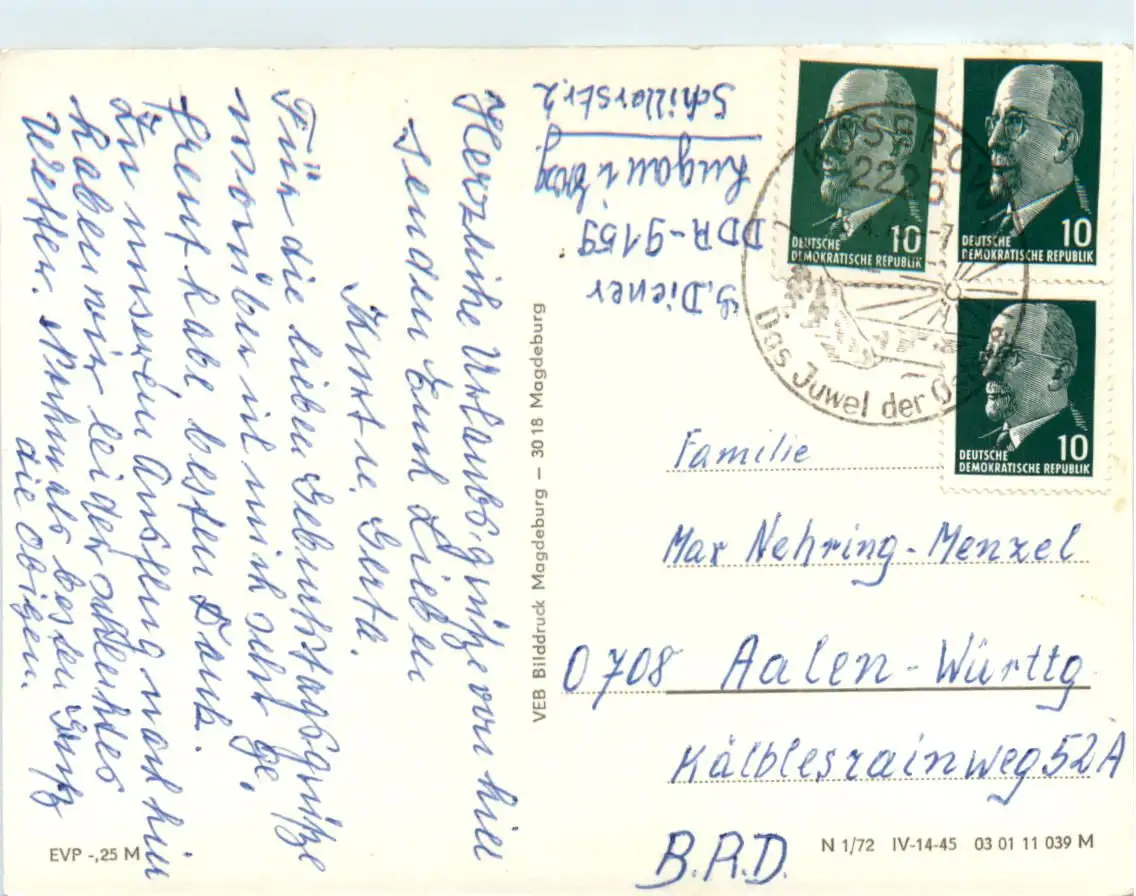 Herzliche Urlaubsgrüße von hier
senden Euch Lieben
Kurt u. Gerta.
Für die lieben Geburtstagsgrüße
worüber ich mich sehr ge,
freut habe besten Dank.
Zu unserem Ausflug nach hier
haben wir leider schlechtes
Wetter. Nochmals besten Gruß
die Obigen.
G. Diener
DDR-9159
Lugau i. Erzg.
Schillerstr. 2
VEB Bilddruck Magdeburg – 3018 Magdeburg
DEUTSCHE
DEMOKRATISCHE REPUBLIK
10
DEUTSCHE
DEMOKRATISCHE REPUBLIK
10
DEUTSCHE
DEMOKRATISCHE REPUBLIK
10
2225
Das Juwel der
Familie
Max Nehring-Menzel
0708 Aalen-Württg
Kälblesrainweg 52A
B.R.D.
EVP -,25 M
N 1/72 IV-14-45 03 01 11 039 M